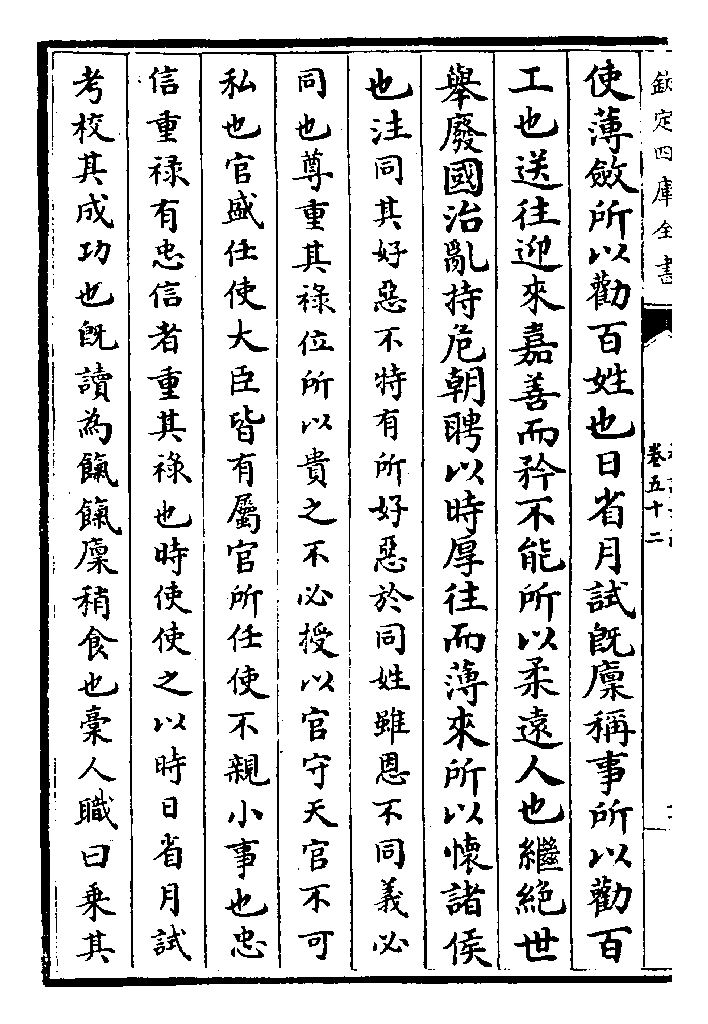 欽定四庫全書
卷五十二
使薄斂所以勸百姓也日省月試既廩稱事所以勸百
工也送往迎來嘉善而矜不能所以柔遠人也繼絶世
舉廢國治亂持危朝聘以時厚往而薄來所以懷諸侯
也注同其好惡不特有所好惡於同姓雖恩不同義必
同也尊重其祿位所以貴之不必授以官守天官不可
私也官盛任使大臣皆有屬官所任使不親小事也忠
信重禄有忠信者重其祿也時使使之以時日省月試
考校其成功也旣讀為餼餼廩稍食也稾人職曰乗其